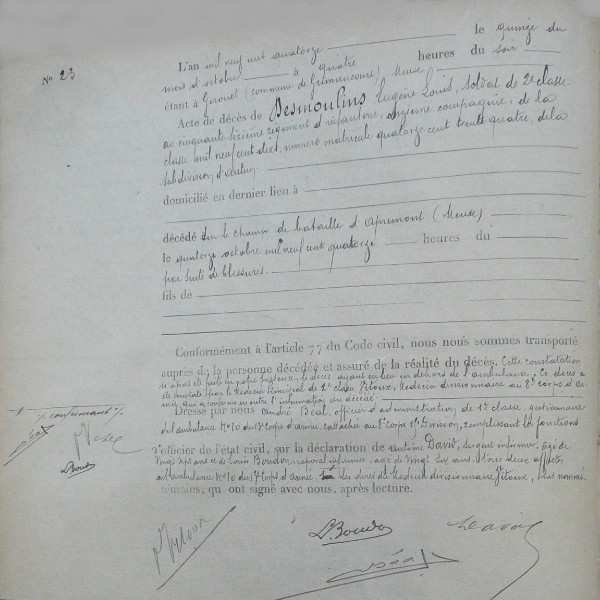 No 23
L'an mil neuf cent quatorze le quinze du
mois d'octobre à quatre heures du soir
étant à Gironet (commune de Grimaucourt) Meuse
Acte de décès de Desmoulins Eugène Louis, soldat de 2e classe
au cinquante sixième régiment d'infanterie, onzième compagnie, de la
classe mil neuf cent dix, numéro matricule quatorze cent trente quatre, de la
subdivision d'Autun
domicilié en dernier lieu à
décédé sur le champ de bataille d'Apremont (Meuse)
le quatorze octobre mil neuf cent quatorze heures du
par suite de blessures.
fils de
Conformément à l'article 77 du Code civil, nous nous sommes transporté
auprès de la personne décédée et assuré de la réalité du décès. Cette constatation
n'a pas été faite en notre présence, le décès ayant eu lieu en dehors de l'ambulance, Ce décès a
été constaté par le Médecin Principal de 2e classe Pitoux, Médecin divisionnaire au 8e Corps d'Armée
qui a confirmé en outre l'inhumation du décédé
Dressé par nous André Béal, officier d'administration de 1e classe, gestionnaire
de l'ambulance No 10 du Corps d'Armée, rattachée au 8e Corps 1e Division, remplissant les fonctions
d'officier de l'état civil, sur la déclaration de Antoine David, sergent infirmier, âgé de
vingt sept ans et de Louis Boudon, caporal infirmier, âgé de vingt six ans tous deux affectés
à l'ambulance No 10 du Corps d'Armée les dires du Médecin divisionnaire Pitoux, plus nommés
témoins, qui ont signé avec nous, après lecture.
Béal
L. Boudon
L. Boudon
David
Béal